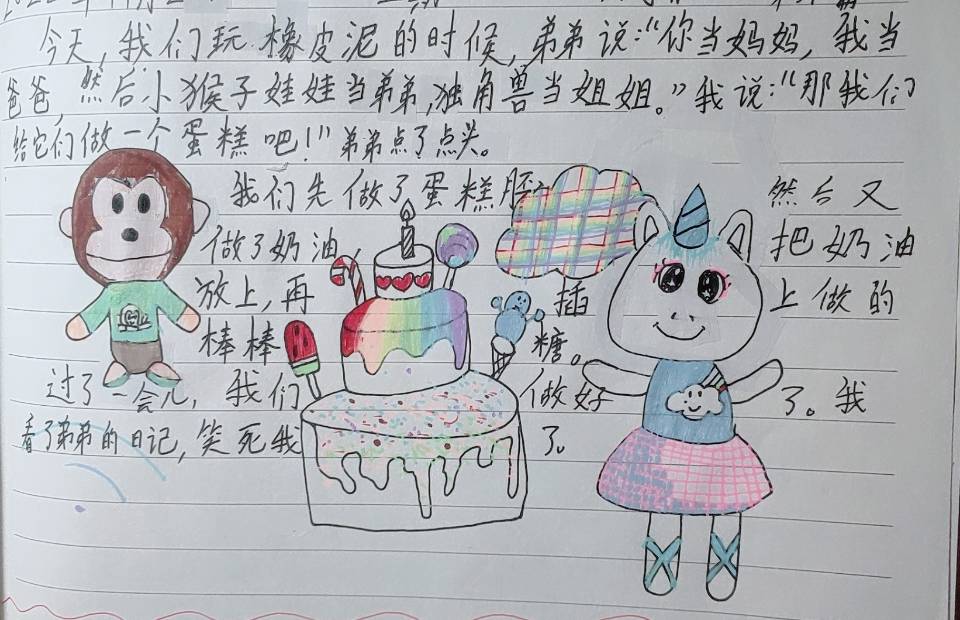 今天,我们玩橡皮泥的时候,弟弟说:“你当妈妈,我当
爸爸,然后小猴子娃娃当弟弟,独角兽当姐姐。”我说:“那我们
给它们做一个蛋糕吧!”弟弟点了点头。
我们先做了蛋糕胚, 然后又
做了奶油, 把奶油
放上,再 插 上做的
棒棒 糖。
过了一会儿,我们 做好 了。我
看了弟弟的日记,笑死我 了。